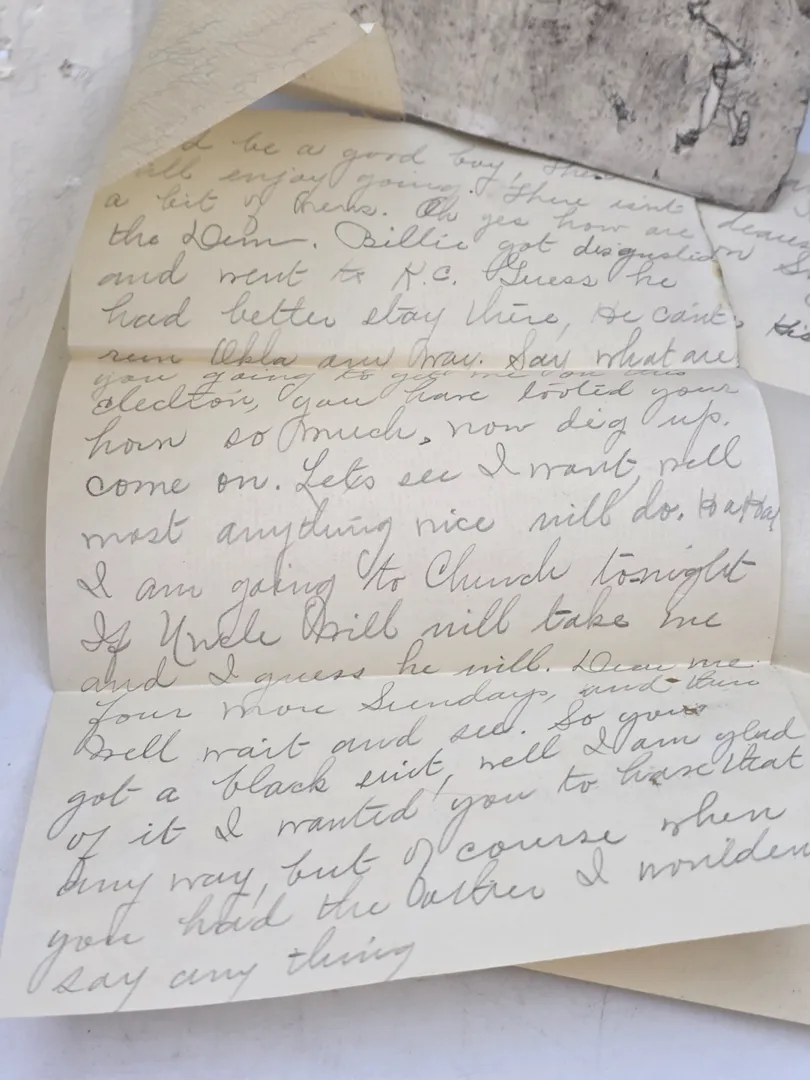 d be a good boy, the
all enjoy going. There isnt
a bit of news. Oh yes how are
the Dem. Billie got disgusted
and went to K.C. Guess he
had better stay there, He cant
run Okla any way. Say what are
you going to give me on this
election, you have tooted your
horn so much, now dig up.
come on. Lets see I want, well
most anything nice will do. Ha Ha
I am going to Church tonight
If Uncle Will will take me
and I guess he will. Dear me
four more Sundays, and then
Well wait and see. So you
got a black suit, well I am glad
of it I wanted you to have that
any way, but of course when
you had the other I woulden
say any thing